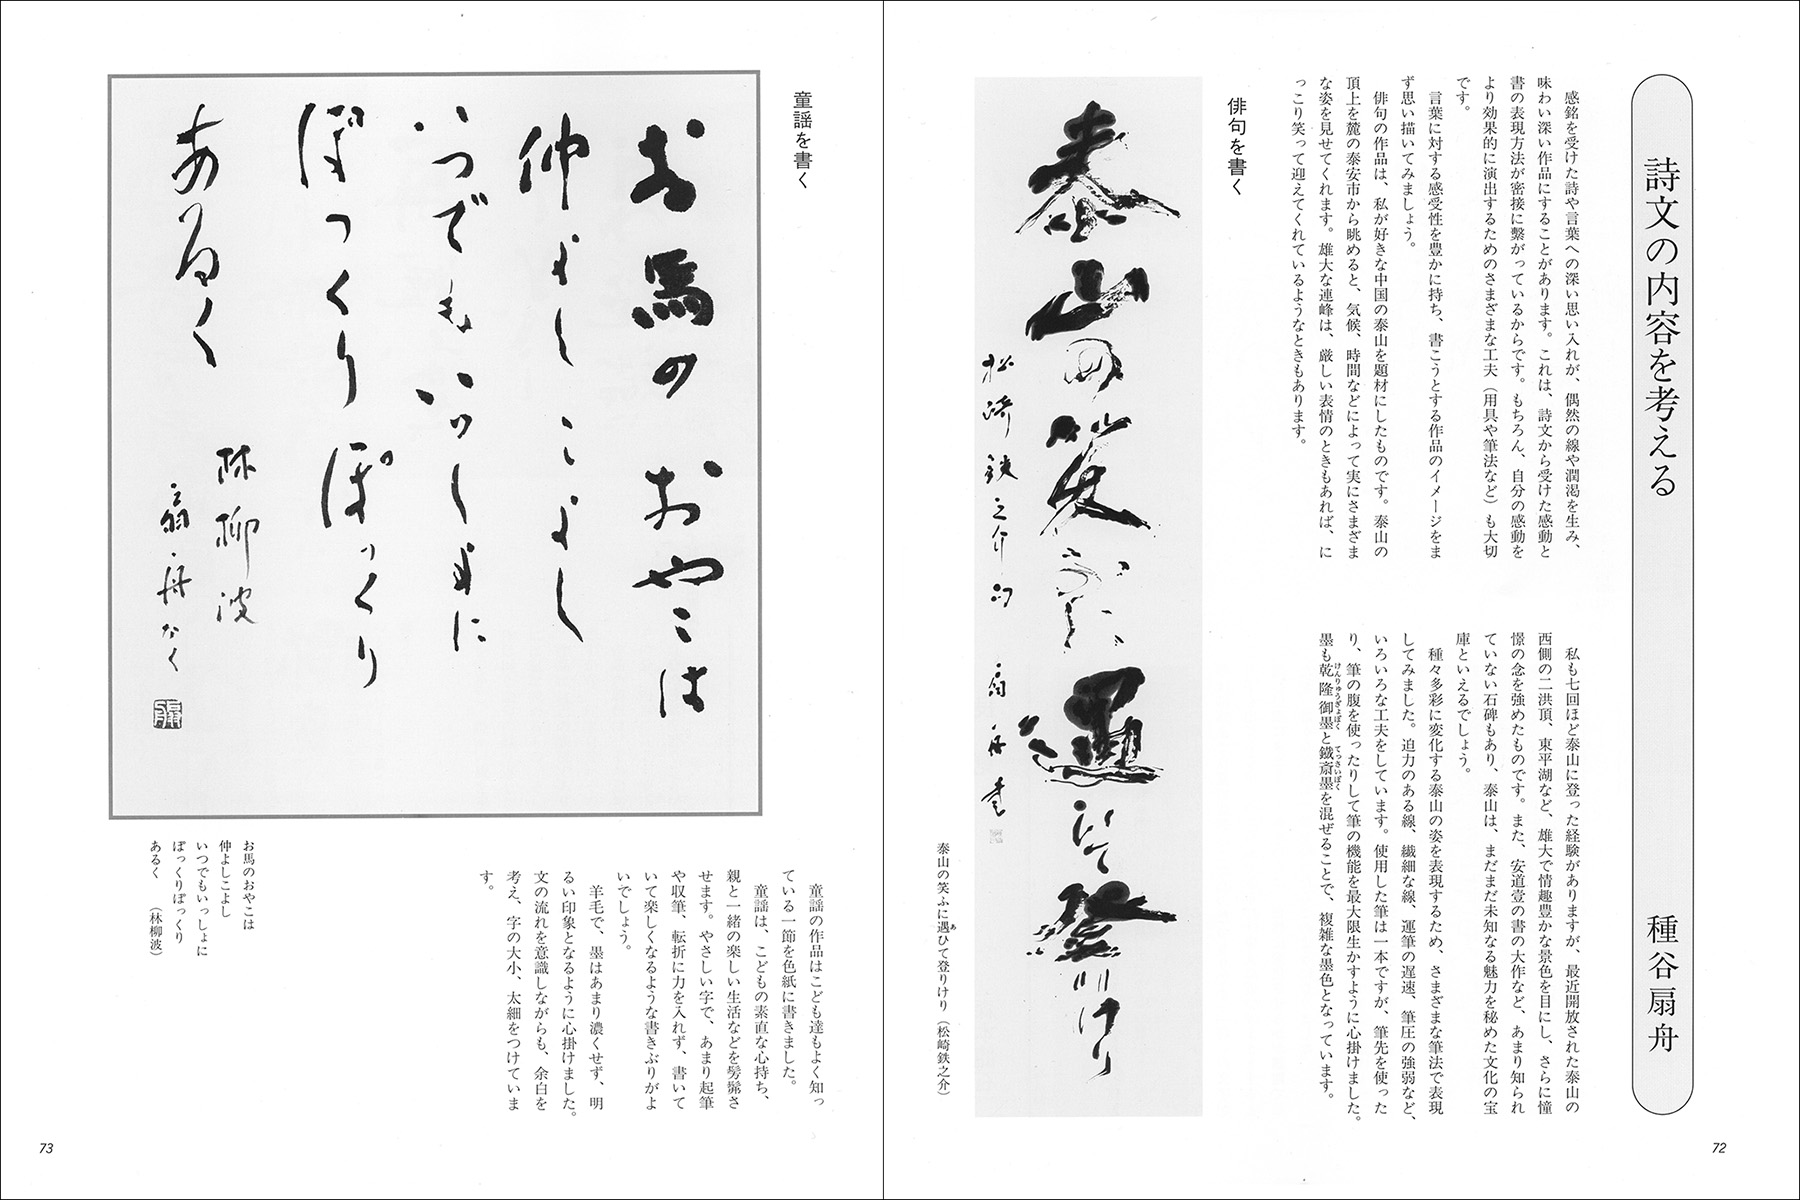 詩文の内容を考える
種谷扇舟
感銘を受けた詩や言葉への深い思い入れが、偶然の線や潤渇を生み、
味わい深い作品にすることがあります。これは、詩文から受けた感動と
書の表現方法が密接に繫がっているからです。もちろん、自分の感動を
より効果的に演出するためのさまざまな工夫（用具や筆法など）も大切
です。
言葉に対する感受性を豊かに持ち、書こうとする作品のイメージをま
ず思い描いてみましょう。
俳句の作品は、私が好きな中国の泰山を題材にしたものです。泰山の
頂上を麓の泰安市から眺めると、気候、時間などによって実にさまざま
な姿を見せてくれます。雄大な連峰は、厳しい表情のときもあれば、に
っこり笑って迎えてくれているようなときもあります。
私も七回ほど泰山に登った経験がありますが、最近開放された泰山の
西側の二洪頂、東平湖など、雄大で情趣豊かな景色を目にし、さらに憧
憬の念を強めたものです。また、安道壹の書の大作など、あまり知られ
ていない石碑もあり、泰山は、まだまだ未知なる魅力を秘めた文化の宝
庫といえるでしょう。
種々多彩に変化する泰山の姿を表現するため、さまざまな筆法で表現
してみました。迫力のある線、繊細な線、運筆の遅速、筆圧の強弱など、
いろいろな工夫をしています。使用した筆は一本ですが、筆先を使った
り、筆の腹を使ったりして筆の機能を最大限生かすように心掛けました。
墨も乾隆御墨と鐵斎墨を混ぜることで、複雑な墨色となっています。
けんりゅうぎょぼく
てっさいぼく
俳句を書く
泰山の笑ふに遇ひて登りけり
松崎鉄之介句 扇舟書
泰山の笑ふに遇ひて登りけり（松崎鉄之介）
あ
72
童謡を書く
お馬のおやこは
仲よしこよし
いつでもいっしょに
ぽっくりぽっくり
あるく
林柳波
扇舟かく
童謡の作品はこども達もよく知っ
ている一節を色紙に書きました。
童謡は、こどもの素直な心持ち、
親と一緒の楽しい生活などを髣髴さ
せます。やさしい字で、あまり起筆
や収筆、転折に力を入れず、書いて
いて楽しくなるような書きぶりがよ
いでしょう。
羊毛で、墨はあまり濃くせず、明
るい印象となるように心掛けました。
文の流れを意識しながらも、余白を
考え、字の大小、太細をつけていま
す。
お馬のおやこは
仲よしこよし
いつでもいっしょに
ぽっくりぽっくり
あるく　（林柳波）
73